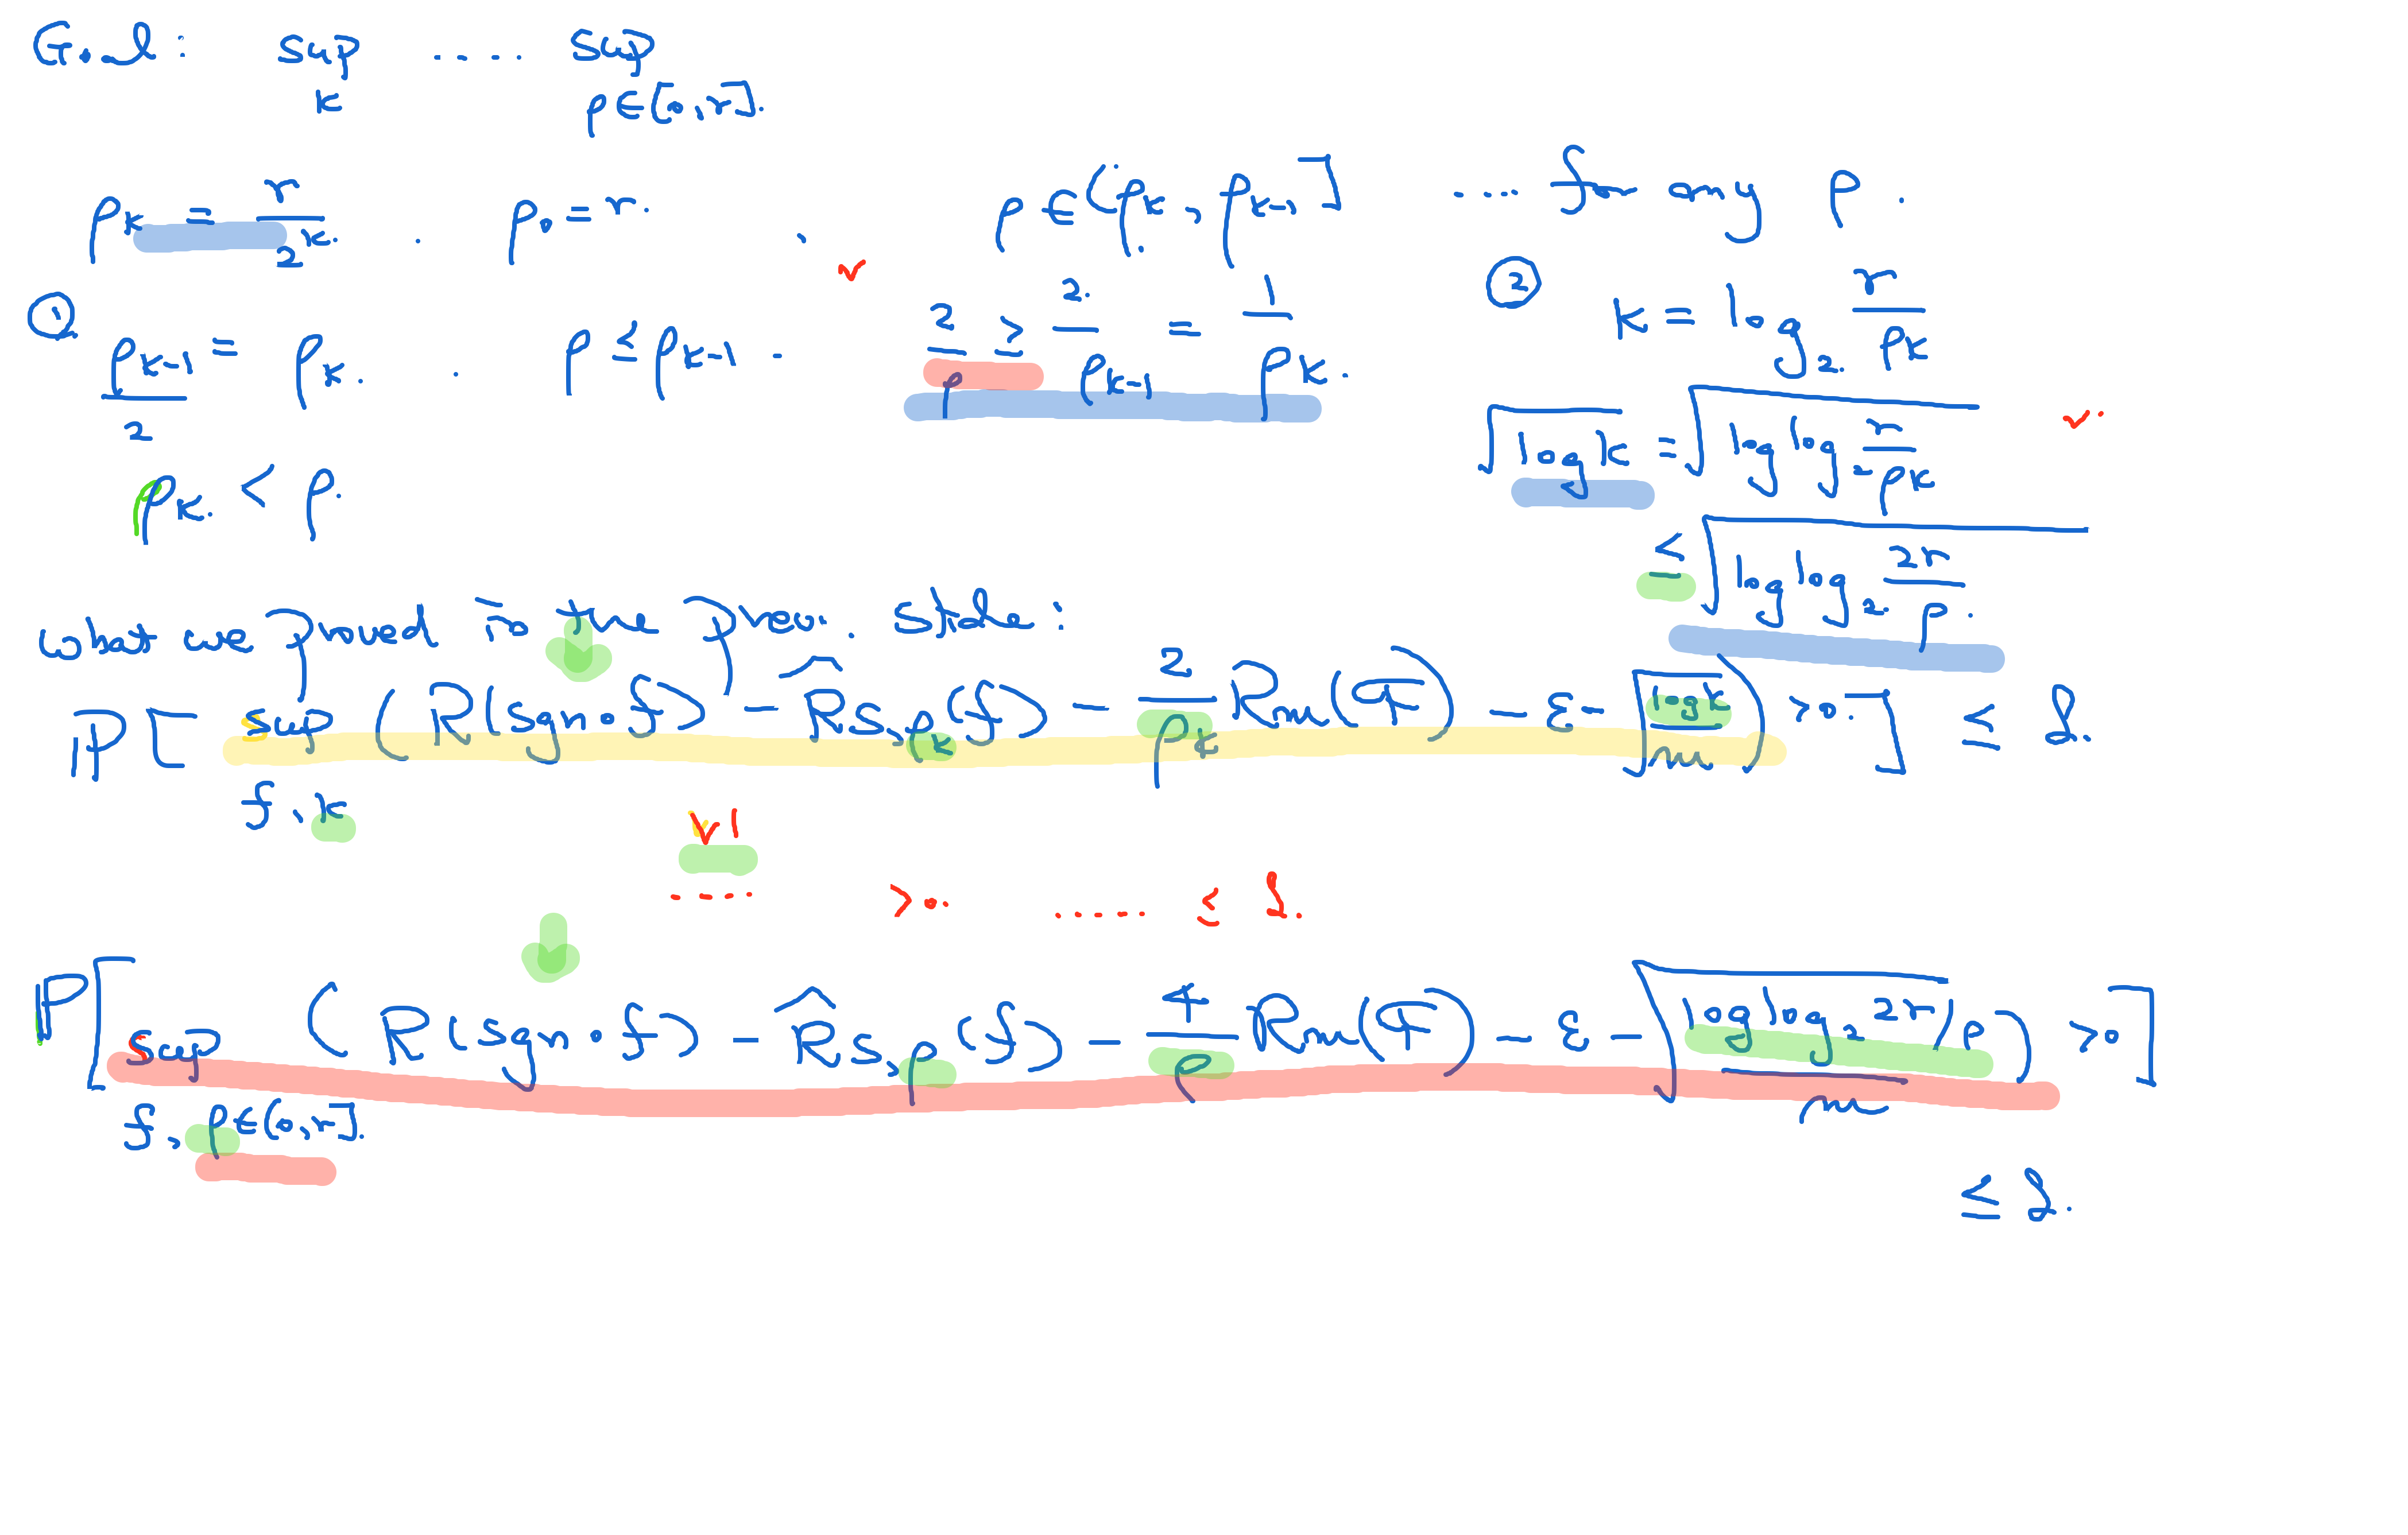 Goal: sup_k ..... sup_{ρ∈(0,r]}.
ρ_k = r/2^k. . ρ_0 = r. , ρ∈(ρ_k, ρ_{k-1}] .... for any ρ.
① ρ_{k-1}/2 = ρ_k. . ρ ≤ ρ_{k-1} . 2/ρ ≥ 2/ρ_{k-1} = 1/ρ_k.
② k = log_2 r/ρ_k
ρ_k < ρ. √(log k) = √(log log_2 r/ρ_k)
≤ √(log log_2 2r/ρ).
what we proved in the prev. slide:
P[ sup_{f,k} (R(sgn∘f) - R̂_{S,ρ_k}(f) - 2/ρ_k R_m(F) - ε - √(log k/m)) >0. ] ≤ δ.
∨|
..... >0. ...... ≤ δ.
P[ sup_{f, ρ∈(0,r]} ( R(sgn∘f) - R̂_{S,ρ}(f) - 4/ρ R_m(F) - ε - √(log log_2 2r/ρ / m) ) >0 ]
≤ δ.